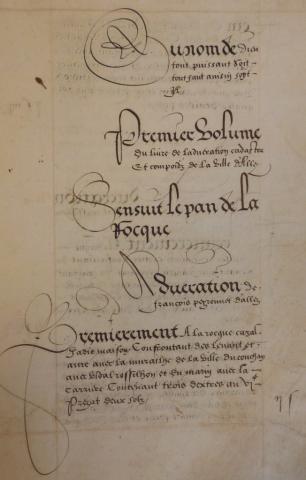 Au nom de Dieu
tout puissant soit
tout faict ainsin soyt
Premier Volume
du livre de laducration cadastre
Et compoids de la ville dAllez
Sensuit le pan de la
Rocque
Aducration de
francois peyronnet dallez
Premierement A la rocque cazal
Jadis maison Confrontant des levant et
aure avec la muralhe de la ville du couchant
avec vidal rossilhon et du marin avec la
carriere Contenant trois dextres
Prezat deux solz